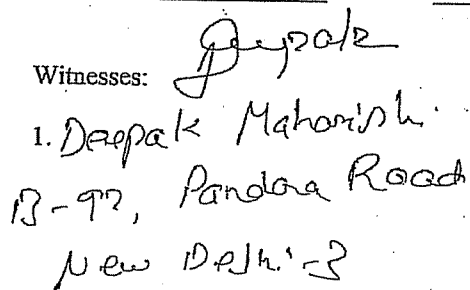 Deepak
Witnesses:
1. Deepak Maharishi
B-97, Pandara Road
New Delhi-3